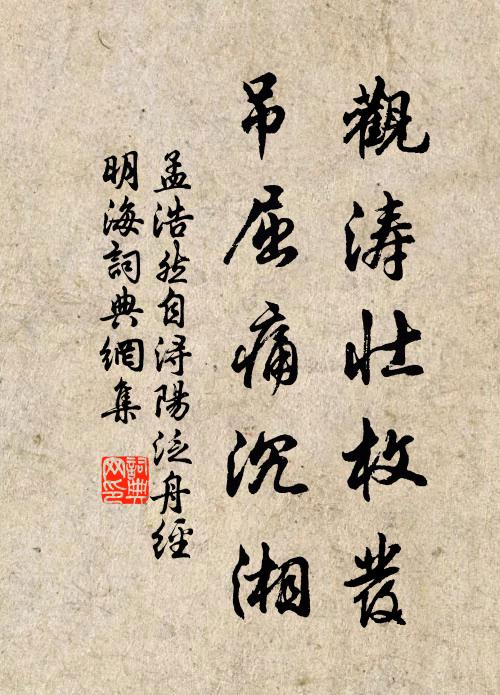 觀濤壯枚發
吊屈痛沉湘
孟浩然自潯陽泛舟經
明海詞典網集
詞典網印